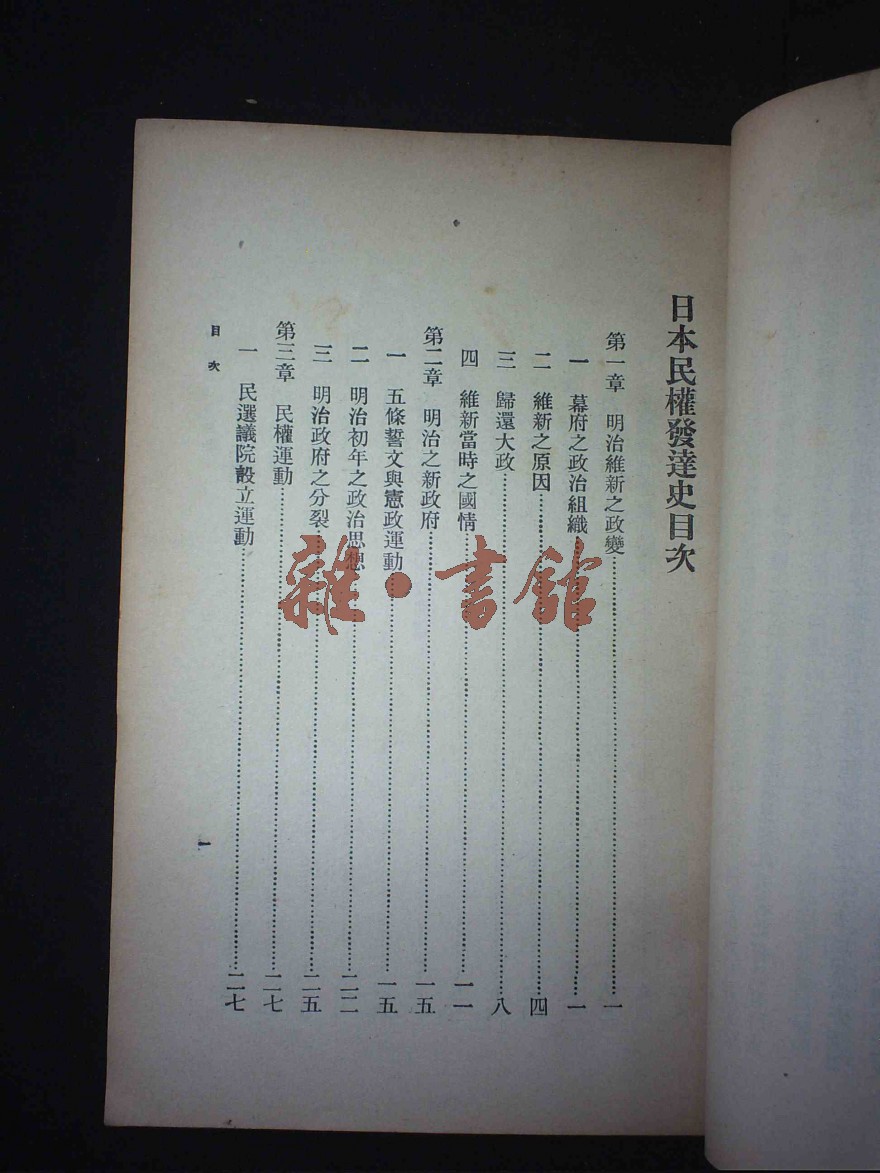 日本民權發達史目次
第一章　明治維新之政變……一
一　幕府之政治組織……一
二　維新之原因……四
三　歸還大政……八
四　維新當時之國情……一一
第二章　明治之新政府……一五
一　五條誓文與憲政運動……一五
二　明治初年之政治思想……二二
三　明治政府之分裂……二五
第三章　民權運動……二七
一　民選議院設立運動……二七
目次
一
雜·書館